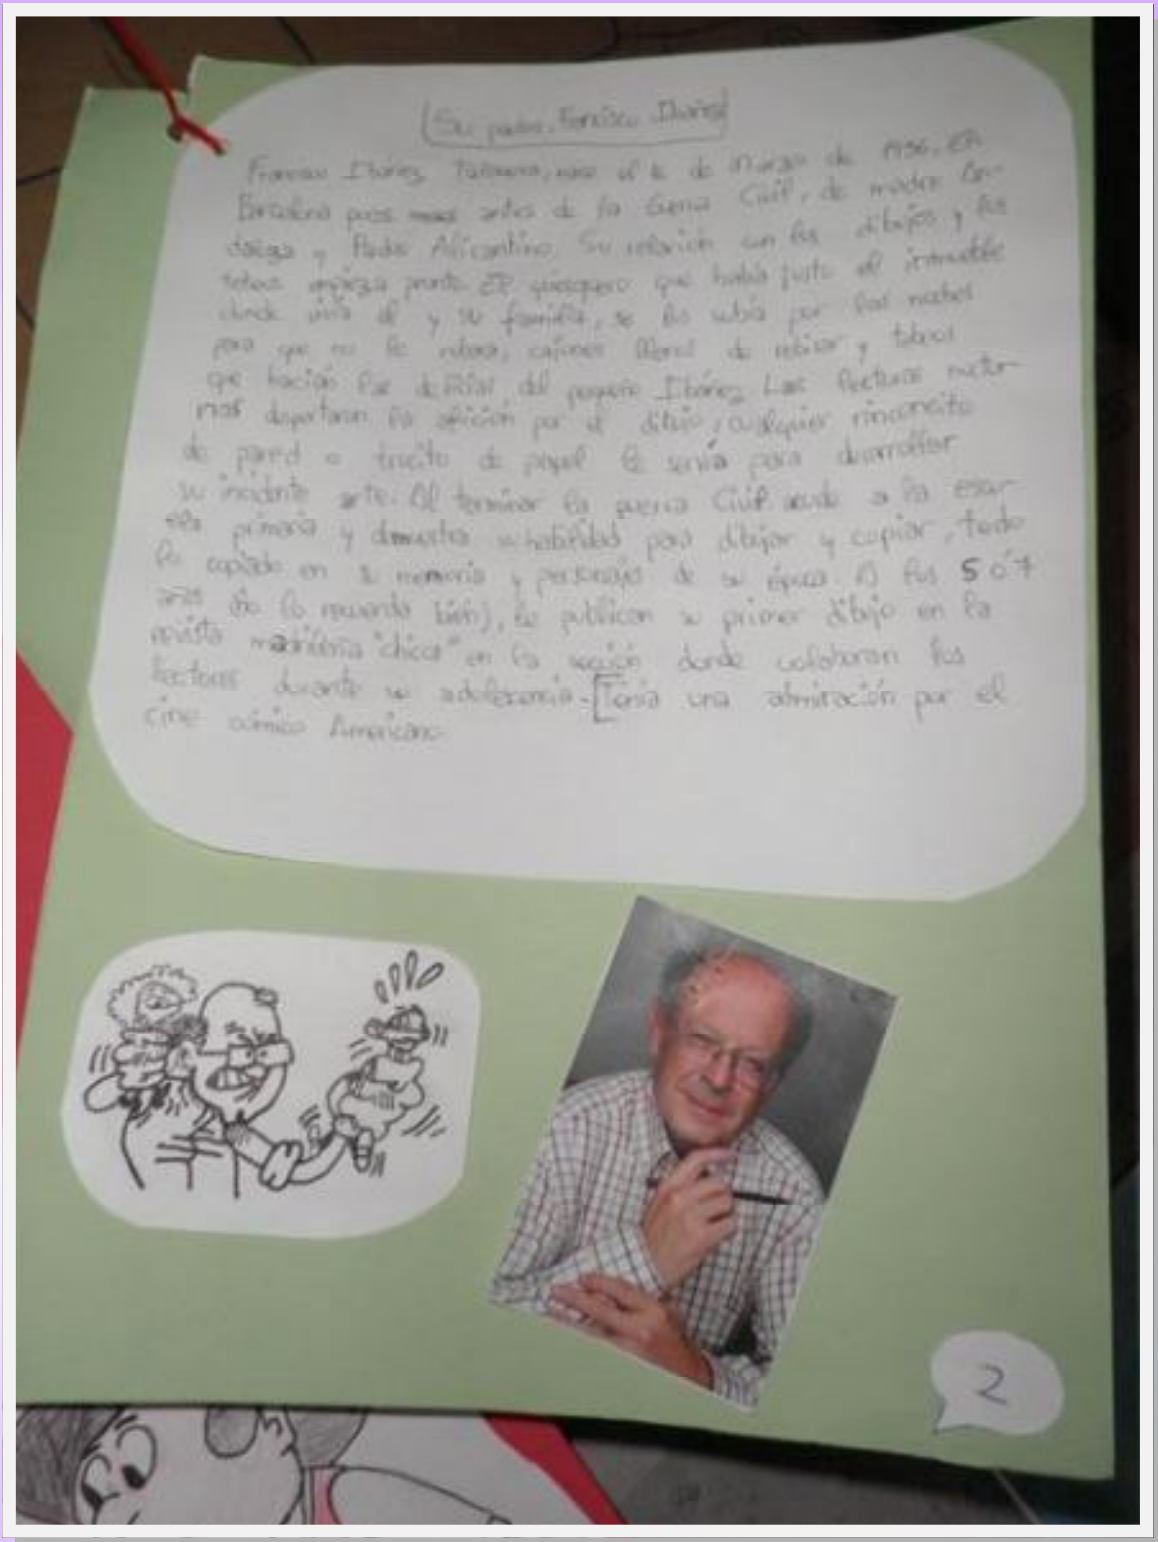 Su padre, Francisco Ibáñez
Francisco Ibáñez Talavera, nace el de Marzo de 1936. En
Barcelona pocos meses antes de la Guerra Civil, de madre An-
daluza y Padre Alicantino. Su relación con los dibujos y los
tebeos empieza pronto. El quiosquero que había justo el inmueble
donde vivía él y su familia, se los subía por las noches
para que no le robara, cajones llenos de revistas y tebeos
que hacían las delicias del pequeño Ibáñez. Las lecturas noctur-
nas despertaron la afición por el dibujo, cualquier rinconcito
de pared o trocito de papel le servía para desarrollar
su incidente arte. Al terminar la guerra Civil acude a la escu-
ela primaria y demuestra su habilidad para dibujar y copiar, todo
lo copiado en su memoria y personajes de su época. A los 5 ó 7
años (no lo recuerda bien), le publican su primer dibujo en la
revista madrileña "chicos" en la sección donde colaboran los
lectores durante su adolescencia. [Tenía una admiración por el
cine cómico Americano.
2